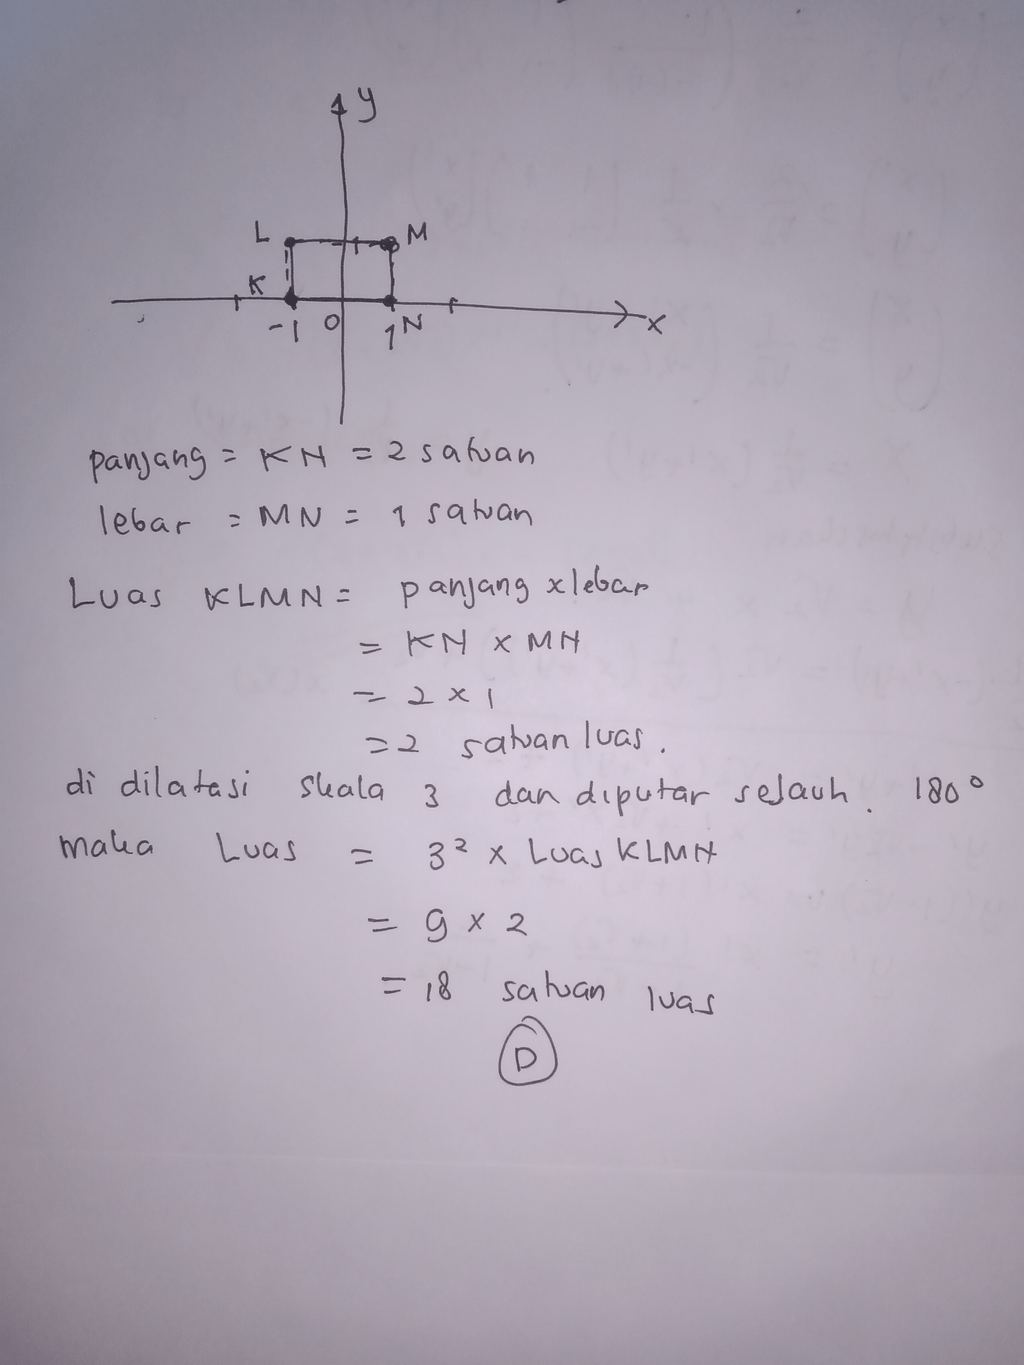 y
L M
K
-1 0 1 N x
panjang = KN = 2 satuan
lebar = MN = 1 satuan
Luas KLMN = panjang x lebar
= KN x MN
= 2 x 1
= 2 satuan luas.
di dilatasi skala 3 dan diputar sejauh. 180°
maka Luas = 3² x Luas KLMN
= 9 x 2
= 18 satuan luas
D